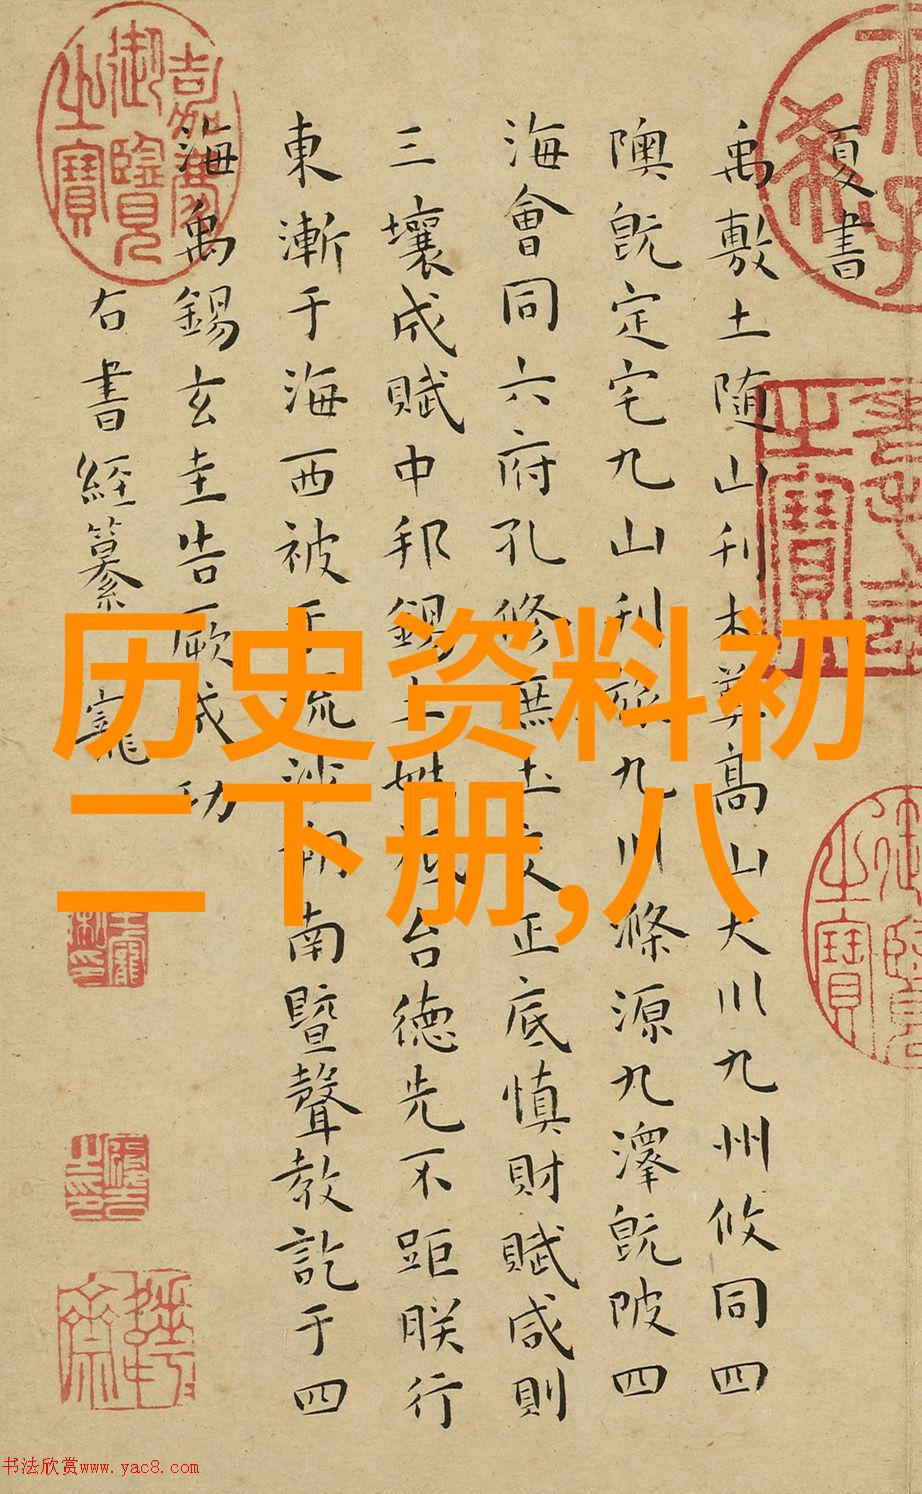 夏書
禹敷土随山刊木奠高山大川九州攸同四
隩既定宅九山刊旅九川滌源九澤既陂四
海會同六府孔修庶土交正底慎財賦咸則
三壤成賦中邦錫土姓祗台德先不距朕行
東漸于海西被于流沙朔南暨聲教訖于四
海禹錫玄圭告厥成功
右書經纂 寵
嘉慶御覽之寶
历史资料初
二下册,八
书法欣赏www.yac8.com